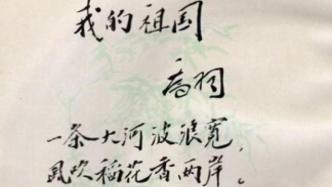 我的祖国
乔羽
一条大河波浪宽，
风吹稻花香两岸。